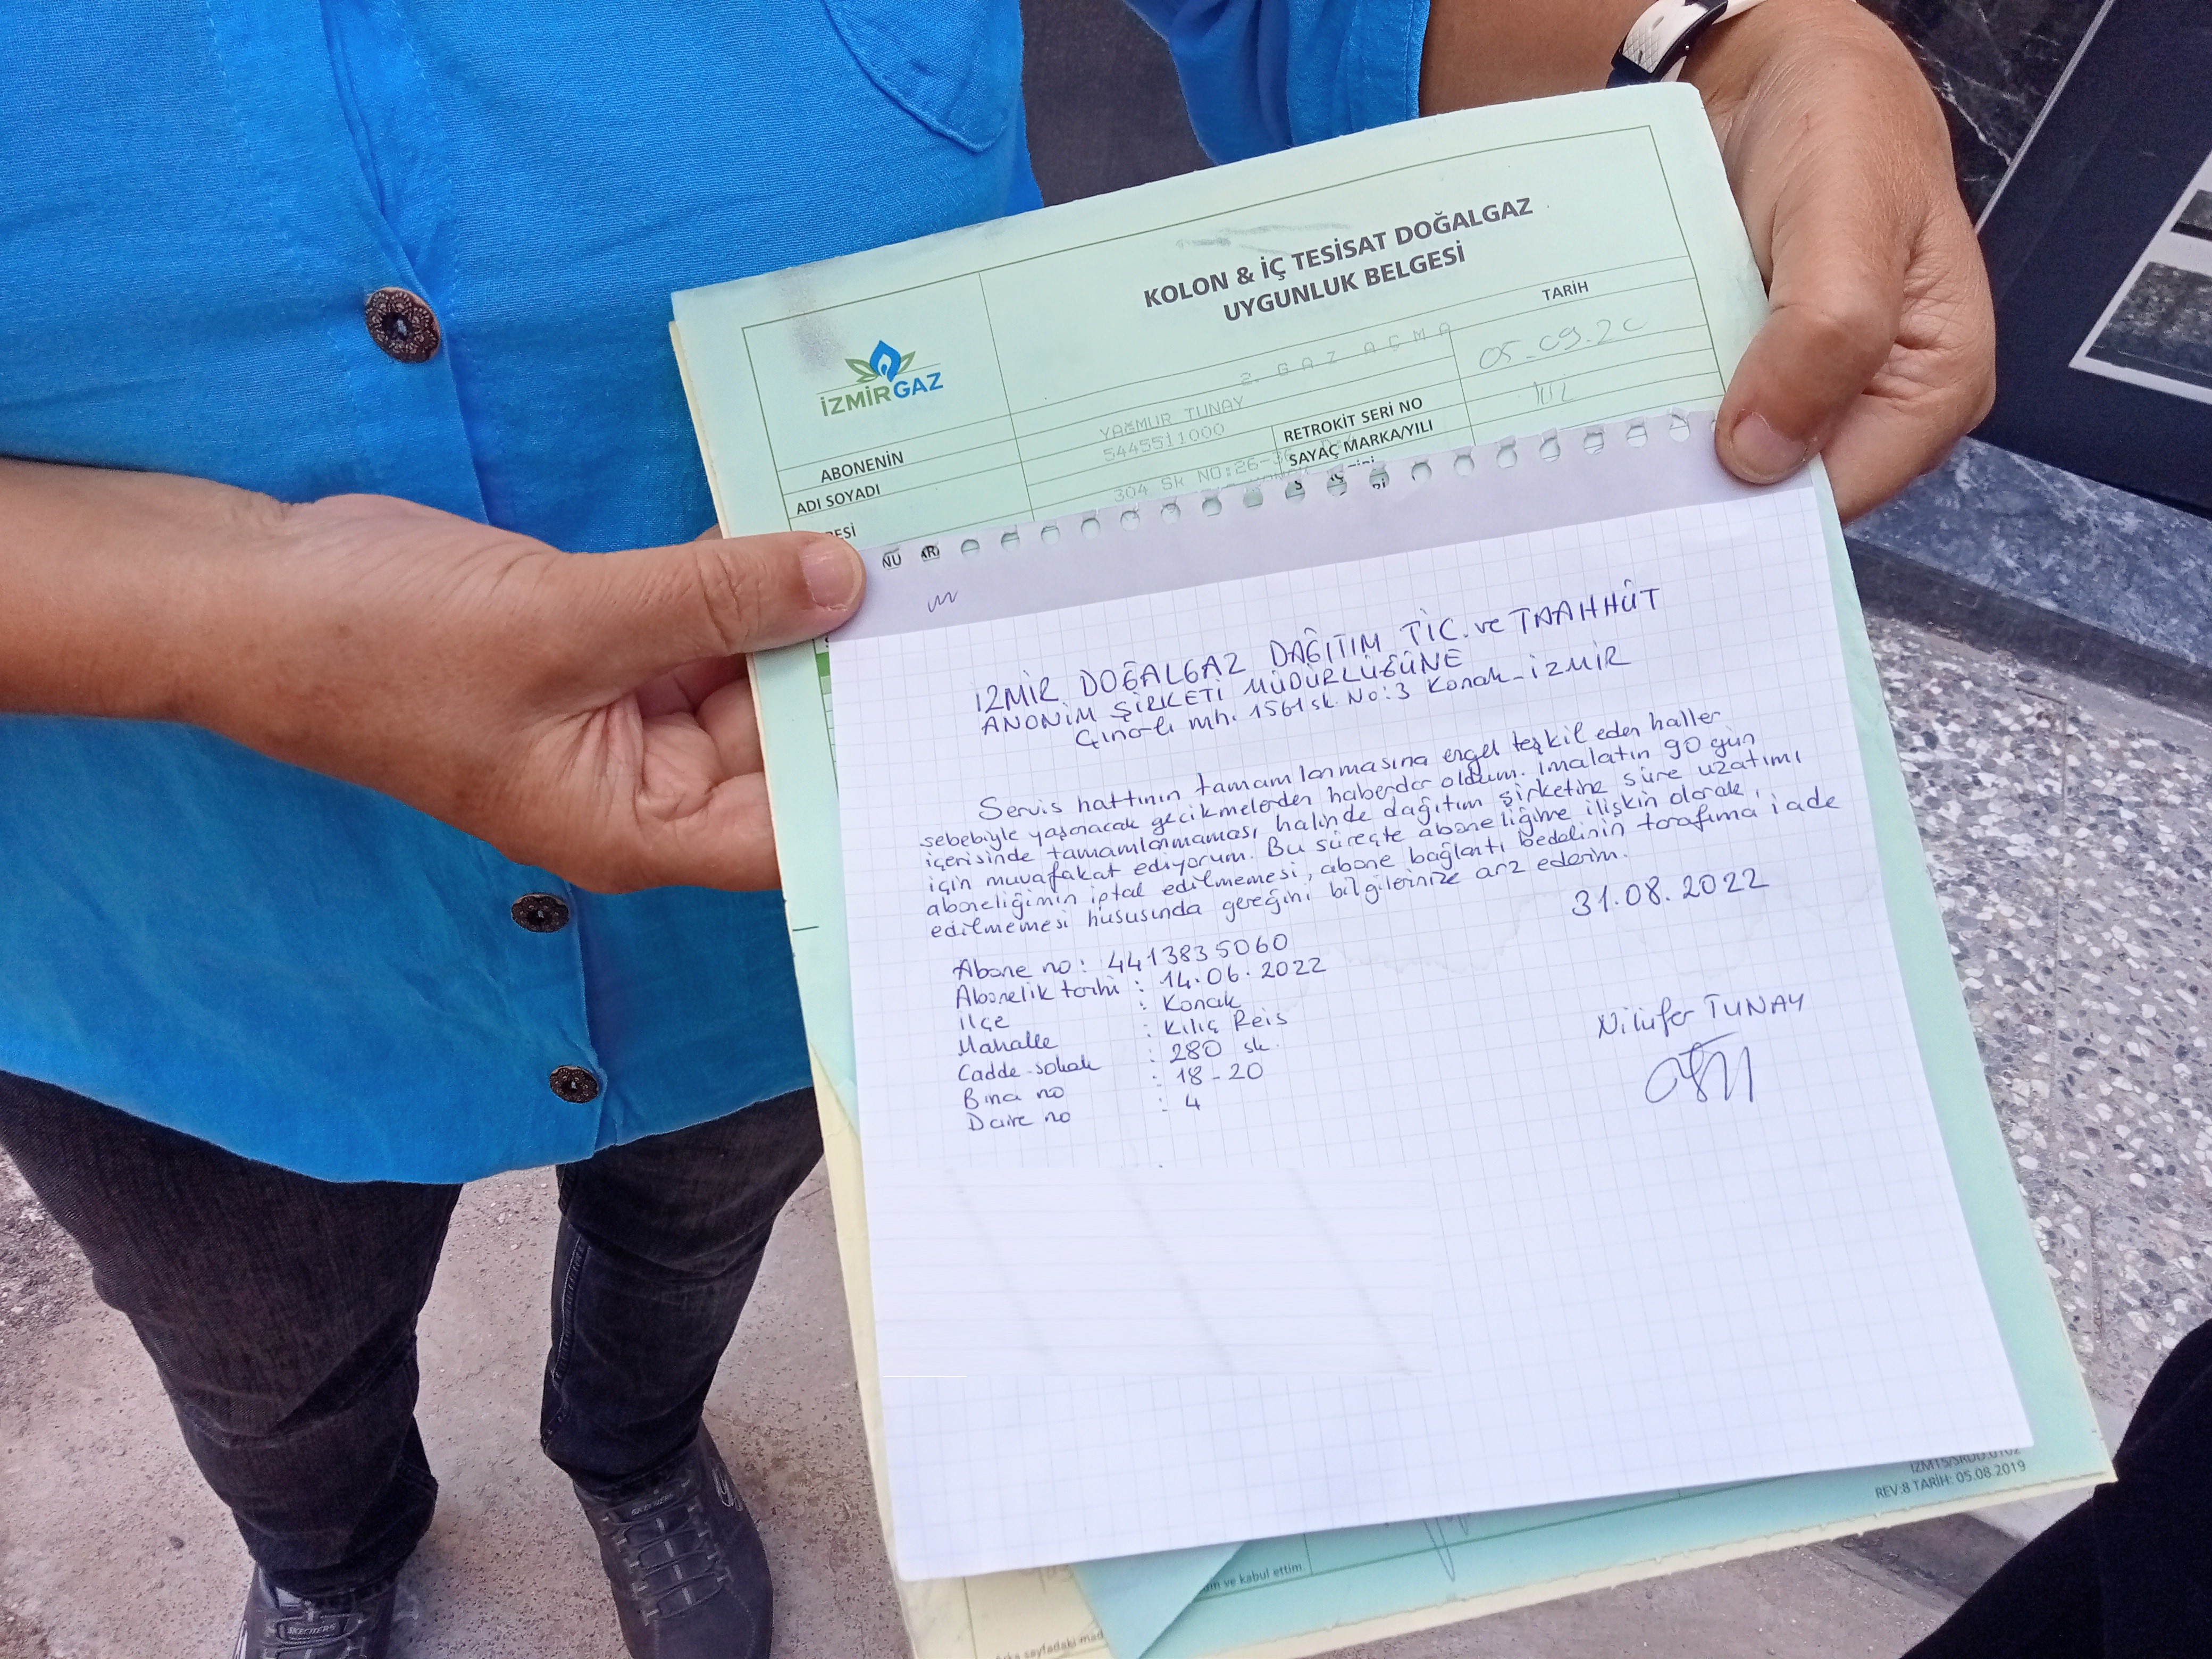 KOLON & İÇ TESİSAT DOĞALGAZ
UYGUNLUK BELGESİ
İZMİRGAZ
TARİH
2. GAZ AÇMA
05-09-20
ABONENİN
YAĞMUR TUNAY
ADI SOYADI
5445511000
RETROKİT SERİ NO
SAYAÇ MARKA/YILI
304 SK NO:26-
İZMİR DOĞALGAZ DAĞITIM TİC. ve TAAHHÜT
ANONİM ŞİRKETİ MÜDÜRLÜĞÜNE
Çınarlı mh. 1561 sk. No:3 Konak-İZMİR
Servis hattının tamamlanmasına engel teşkil eden haller
sebebiyle yaşanacak gecikmelerden haberdar oldum. İmalatın 90 gün
içerisinde tamamlanmaması halinde dağıtım şirketine süre uzatımı
için muvafakat ediyorum. Bu süreçte aboneliğime ilişkin olarak,
aboneliğimin iptal edilmemesi, abone bağlantı bedelinin tarafıma iade
edilmemesi hususunda gereğini bilgilerinize arz ederim.
31.08.2022
Abone no: 4413835060
Abonelik tarihi : 14.06.2022
İlçe : Konak
Mahalle : Kılıç Reis
Cadde-sokak : 280 sk.
Bina no : 18-20
Daire no : 4
Nilüfer TUNAY
REV:8 TARİH: 05.08.2019
ve kabul ettim.
SKECHERS
SKECHERS